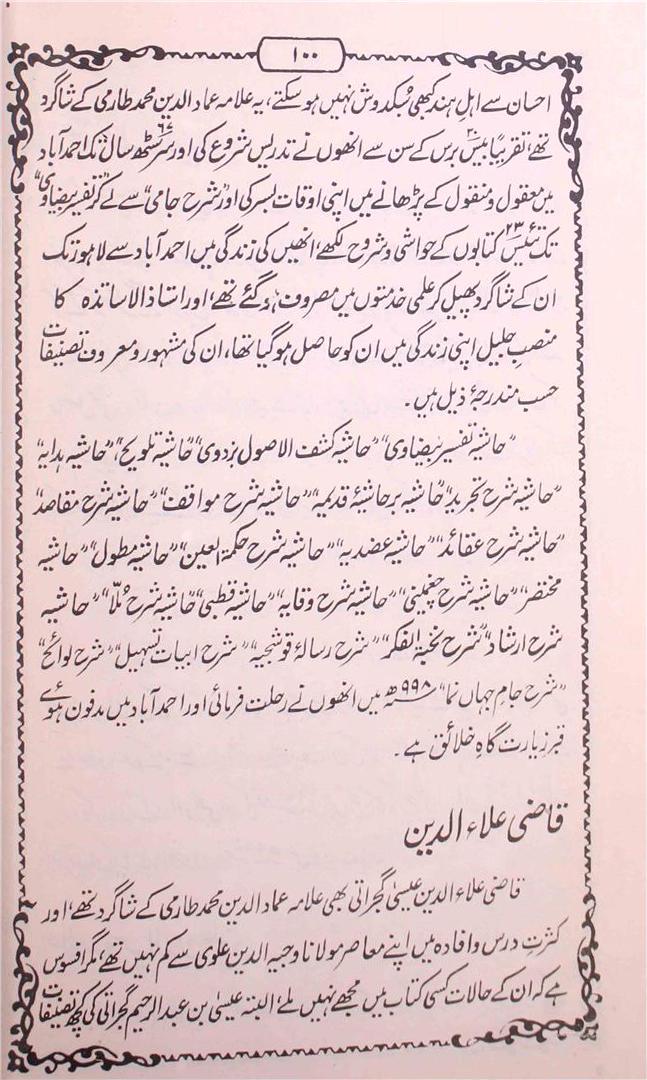 ۱۰۰
احسان سے اہلِ ہند کبھی سُبکدوش نہیں ہو سکتے، یہ علامہ عماد الدین محمد طارمی کے شاگرد
تھے، تقریبًا بیس ۲۰ برس کے سن سے انھوں نے تدریس شروع کی اور سرسٹھ ۶۷ سال تک احمد آباد
میں معقول و منقول کے پڑھانے میں اپنی اوقات بسر کی اور "شرح جامی" سے لے کر "تفسیر بیضاوی"
تک تئیس ۲۳ کتابوں کے حواشی و شروح لکھے، انھیں کی زندگی میں احمد آباد سے لاہور تک
ان کے شاگرد پھیل کر علمی خدمتوں میں مصروف ہو گئے تھے، اور استاذ الاساتذہ کا
منصبِ جلیل اپنی زندگی میں ان کو حاصل ہو گیا تھا، ان کی مشہور و معروف تصنیفات
حسب مندرجۂ ذیل ہیں۔
"حاشیہ تفسیر بیضاوی" "حاشیہ کشف الاصول بزدوی" "حاشیہ تلویح" "حاشیہ ہدایہ"
"حاشیہ شرح تجرید" "حاشیہ بر حاشیۂ قدیمہ" "حاشیہ شرح مواقف" "حاشیہ شرح مقاصد"
"حاشیہ شرح عقائد" "حاشیہ عضدیہ" "حاشیہ شرح حکمۃ العین" "حاشیہ مطول" "حاشیہ
مختصر" "حاشیہ شرح چغمینی" "حاشیہ شرح وقایہ" "حاشیہ قطبی" "حاشیہ شرح مُلّا" "حاشیہ
شرح ارشاد" "شرح نخبۃ الفکر" "شرح رسالۂ قوشجیہ" "شرح ابیات تسہیل" "شرح لوائح"
"شرح جام جہاں نما" ۹۹۸ھ میں انھوں نے رحلت فرمائی اور احمد آباد میں مدفون ہوئے
قبر زیارت گاہِ خلائق ہے۔
قاضی علاء الدین
قاضی علاء الدین عیسیٰ گجراتی بھی علامہ عماد الدین محمد طارمی کے شاگرد تھے، اور
کثرتِ درس و افادہ میں اپنے معاصر مولانا وجیہ الدین علوی سے کم نہیں تھے، مگر افسوس
ہے کہ ان کے حالات کسی کتاب میں مجھے نہیں ملے، البتہ عیسیٰ بن عبد الرحیم گجراتی کی کچھ تصنیفات